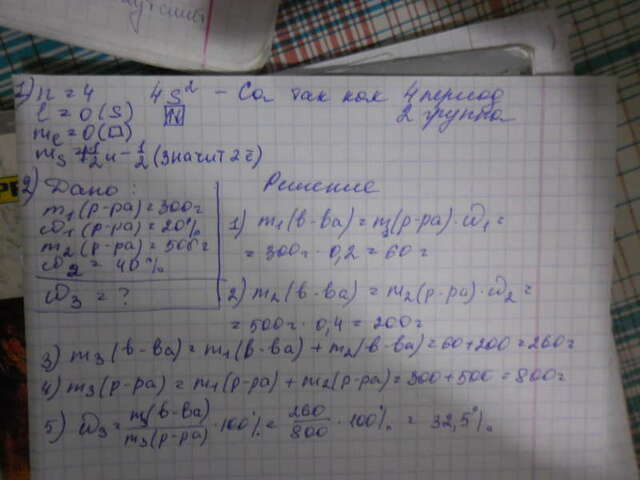 1) n = 4 4S² - Ca так как 4 период
l = 0 (S) 2 группа
me = 0 (□)
ms = +1/2 и -1/2 (значит 2ē)
2) Дано: Решение
m1 (р-ра) = 300г
ω1 (р-ра) = 20%
m2 (р-ра) = 500г
ω2 = 40%
ω3 = ?
1) m1 (в-ва) = m1 (р-ра) · ω1 =
= 300г · 0,2 = 60г
2) m2 (в-ва) = m2 (р-ра) · ω2 =
= 500г · 0,4 = 200г
3) m3 (в-ва) = m1 (в-ва) + m2 (в-ва) = 60 + 200 = 260г
4) m3 (р-ра) = m1 (р-ра) + m2 (р-ра) = 300 + 500 = 800г
5) ω3 = m3 (в-ва) / m3 (р-ра) · 100% = 260/800 · 100% = 32,5%